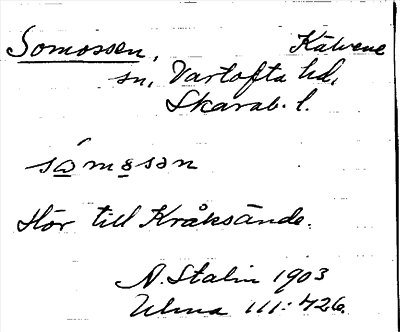 Somossen, Kälvene
sn, Vartofta hd,
Skarab. l.
sómosən
Hör till Kråksände.
A. Stalin 1903
Ulma 111:426.